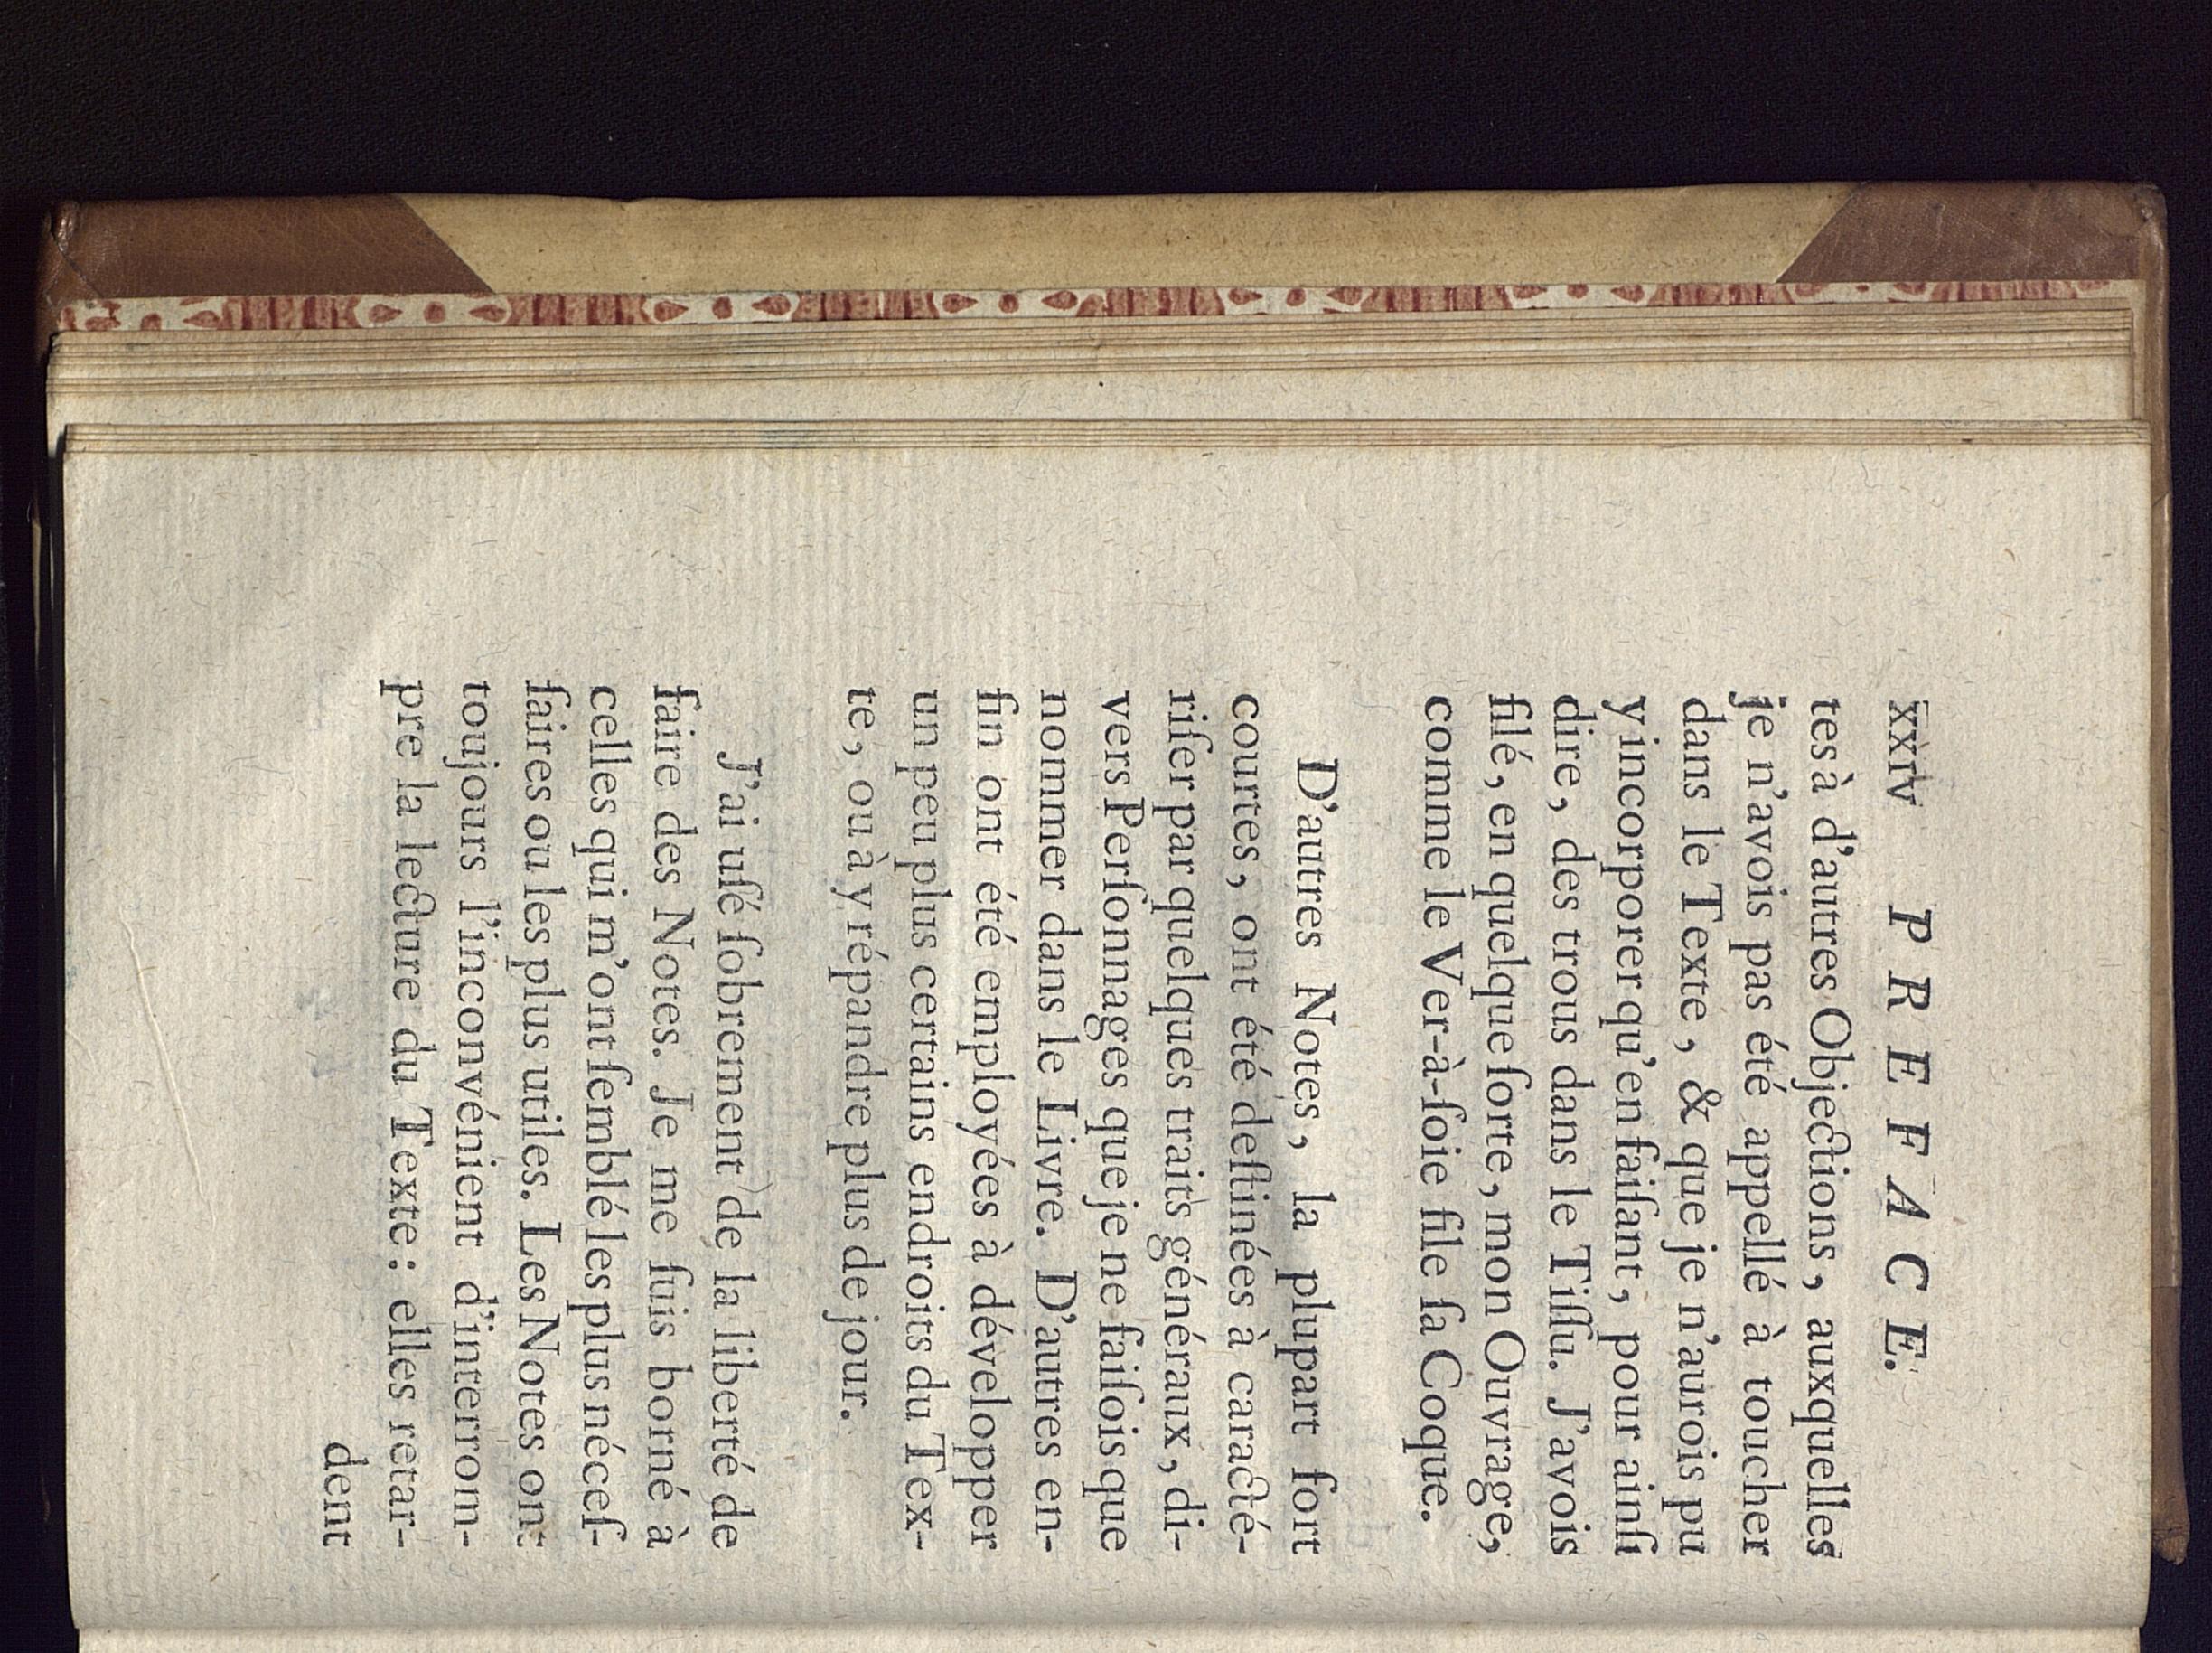 xxiv PREFACE.
tes à d'autres Objections, auxquelles
je n'avois pas été appellé à toucher
dans le Texte, & que je n'aurois pu
y incorporer qu'en faiſant, pour ainſi
dire, des trous dans le Tiſſu. J'avois
filé, en quelque ſorte, mon Ouvrage,
comme le Ver-à-ſoie file ſa Coque.
D'autres Notes, la plupart fort
courtes, ont été deſtinées à caracté-
riſer par quelques traits généraux, di-
vers Perſonnages que je ne faiſois que
nommer dans le Livre. D'autres en-
fin ont été employées à développer
un peu plus certains endroits du Tex-
te, ou à y répandre plus de jour.
J'ai uſé ſobrement de la liberté de
faire des Notes. Je me ſuis borné à
celles qui m'ont ſemblé les plus néceſ-
ſaires ou les plus utiles. Les Notes ont
toujours l'inconvénient d'interrom-
pre la lecture du Texte: elles retar-
dent